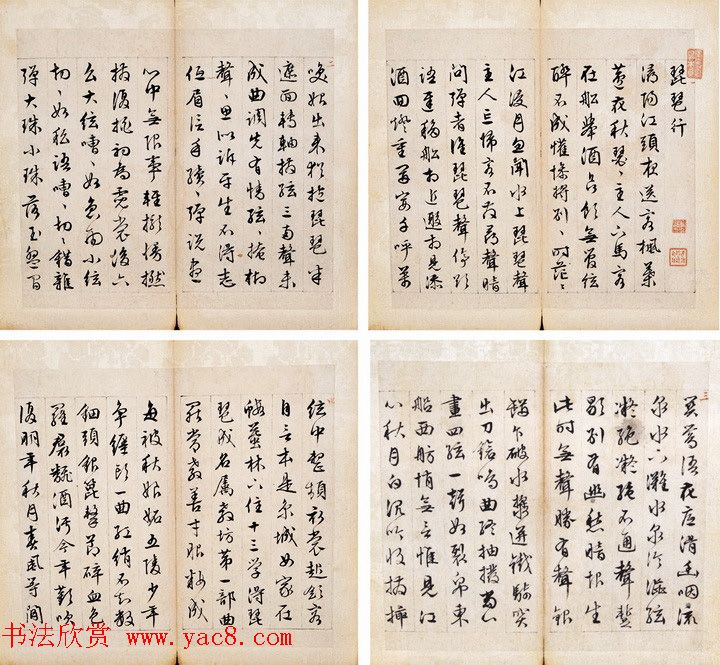 琵琶行
潯陽江頭夜送客楓葉
荻花秋瑟〻主人下馬客
在船舉酒欲飲無管絃
醉不成懽慘將別〻時茫〻
江浸月忽聞水上琵琶聲
主人忘歸客不發尋聲暗
問彈者誰琵琶聲停欲
語遲移船相近邀相見添
酒回燈重開宴千呼萬
二
喚始出來猶抱琵琶半
遮面轉軸撥絃三兩聲未
成曲調先有情絃〻掩抑
聲〻思似訴平生不得志
低眉信手續〻彈說盡
心中無限事輕攏慢撚
撥復挑初為霓裳後六
么大弦嘈〻如急雨小弦
切〻如私語嘈〻切〻錯雜
彈大珠小珠落玉盤間
三
關鶯語花底滑幽咽流
泉水下灘水泉冷澀絃
凝絕凝絕不通聲暫
歇別有幽愁暗恨生
此時無聲勝有聲銀
瓶乍破水漿迸鐵騎突
出刀鎗鳴曲終抽撥當心
畫四絃一聲如裂帛東
船西舫悄無言惟見江
心秋月白沉吟收撥插
四
絃中整頓衣裳起斂容
自言本是京城女家在
蝦蟇陵下住十三學得琵
琶成名屬教坊第一部曲
罷常教善才服粧成
每被秋娘妬五陵少年
爭纏頭一曲紅綃不知數
鈿頭銀篦擊節碎血色
羅裙翻酒污今年歡笑
復明年秋月春風等閒
书法欣赏 www.yac8.com